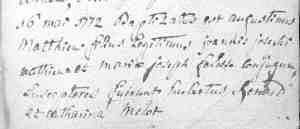 16 mai 1772 Baptizatus est augustinus
Matthieu filius legitimus joannis josephi
mathieu et mariæ joseph conjugum
Susceptores fuerunt Renard
et catharina Melot